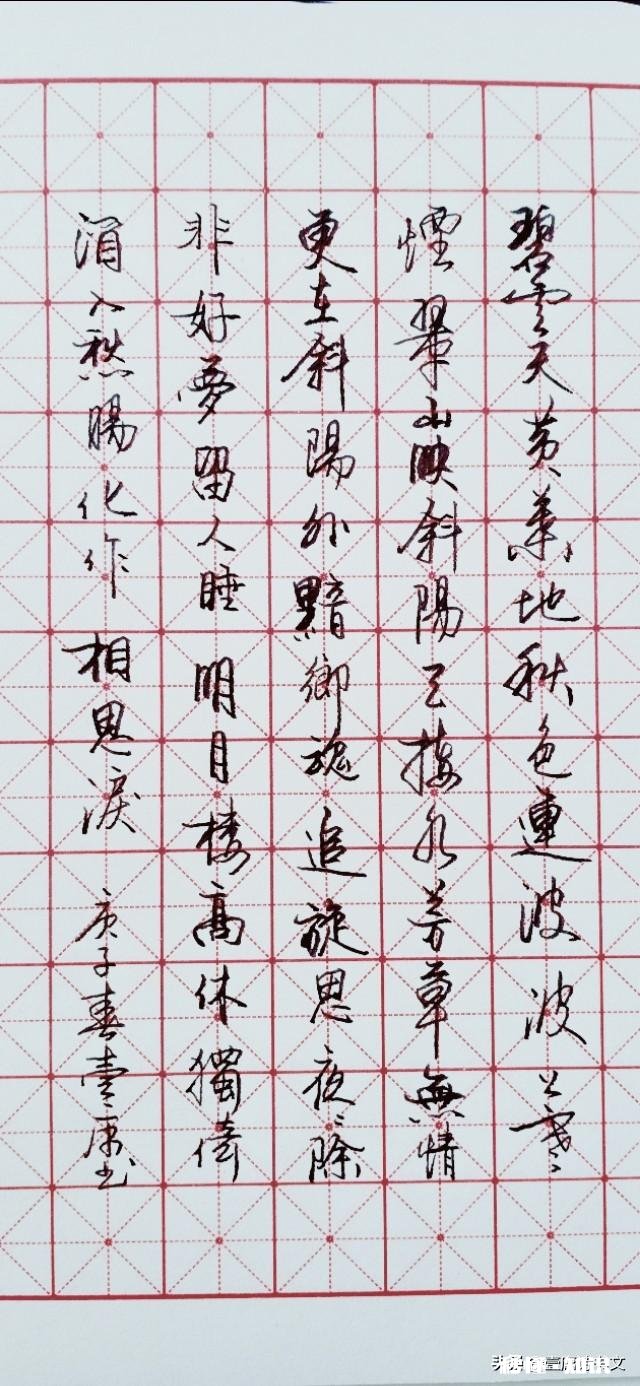 碧雲天黄葉地秋色連波波上寒
煙翠山映斜陽天接水芳草無情
更在斜陽外黯鄉魂追旅思夜〻除
非好夢留人睡明月樓高休獨倚
酒入愁腸化作相思淚 庚子春壹书
头条